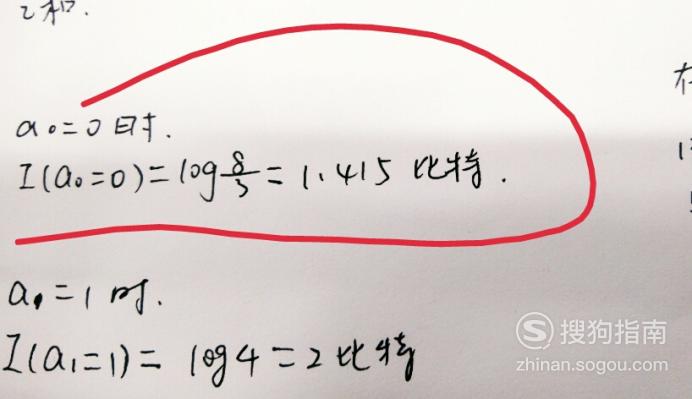 之和.
a₀=0时.
I(a₀=0)=log 8/3=1.415 比特.
a₁=1时.
I(a₁=1)=log4=2比特
搜狗指南
zhinan.sogou.com